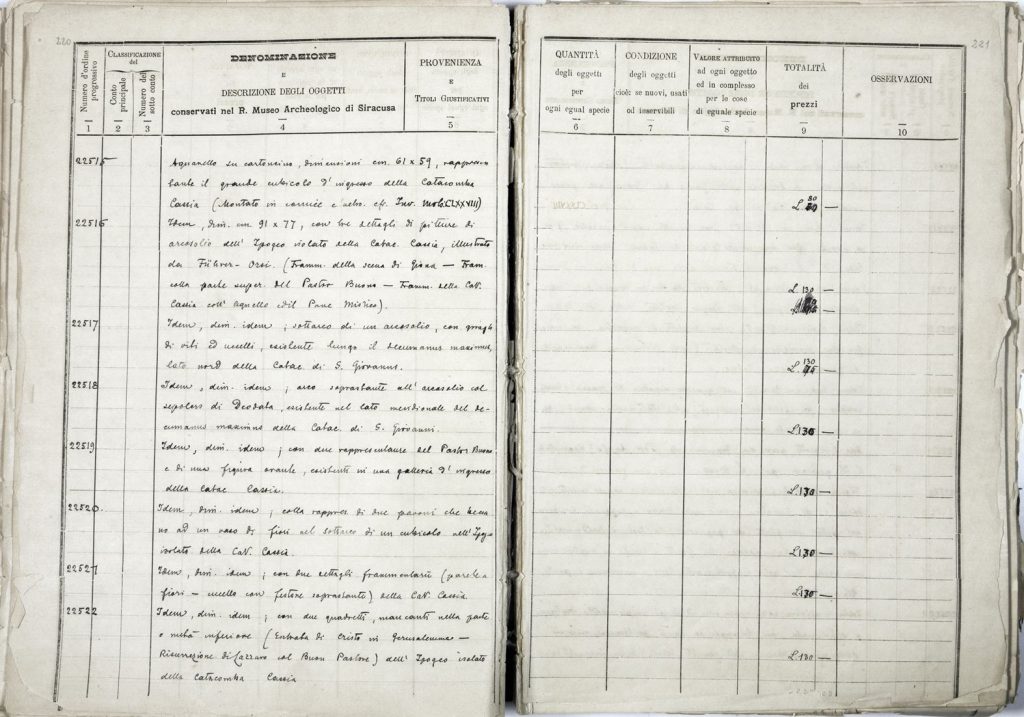 220
Numero d'ordine progressivo
CLASSIFICAZIONE
del
Conto principale
Numero del sotto conto
DENOMINAZIONE
E
DESCRIZIONE DEGLI OGGETTI
conservati nel R. Museo Archeologico di Siracusa
PROVENIENZA
E
TITOLI GIUSTIFICATIVI
1 2 3 4 5
22515 Aquarello su cartoncino, dimensioni cm. 61 x 59, rappresen
tante il grande cubicolo d'ingresso della Catacomba
Cassia (Montato in cornice e vetro. cfr. Inv. Mob. CLXXVIII)
22516 Idem, dim. cm 91 x 77, con tre dettagli di pitture di
arcosolio dell'Ipogeo violato della Catac. Cassia, illustrato
da Führer-Orsi. (Framm. della scena di Giona — Fram.
colla parte super. del Pastor Buono — Framm. della Cat.
Cassia coll'Agnello ed il Pane Mistico).
22517 Idem, dim. idem; sottarco di un arcosolio, con
di viti ed uccelli, esistente lungo il decumanus maximus,
lato nord della Catac. di S. Giovanni.
22518 Idem, dim. idem; arco soprastante all'arcosolio col
sepolcro di Deodata, esistente nel lato meridionale del de-
cumanus maximus della Catac. di S. Giovanni.
22519 Idem, dim. idem; con due rappresentanze del Pastor Buono
e di una figura orante, esistenti in una galleria d'ingresso
della Catac. Cassia.
22520 Idem, dim. idem; colla rappres. di due pavoni che
no ad un vaso di fiori nel sottarco di un cubicolo nell'Ipogeo
isolato della Cat. Cassia.
22521 Idem, dim. idem; con due dettagli frammentarii (
fiori - uccello con festone soprastante) della Cat. Cassia.
22522 Idem, dim. idem; con due quadretti, mancanti nella parte
o metà inferiore (Entrata di Cristo in Gerusalemme —
Risurrezione di Lazzaro col Buon Pastore) dell'Ipogeo isolato
della Catacomba Cassia
221
QUANTITÀ
degli oggetti
per
ogni egual specie
CONDIZIONE
degli oggetti
cioè: se nuovi, usati
od inservibili
VALORE ATTRIBUITO
ad ogni oggetto
ed in complesso
per le cose
di eguale specie
TOTALITÀ
dei
prezzi
OSSERVAZIONI
6 7 8 9 10
L. 80 —
L. 130 —
130
L. 75 —
L. 130 —
L. 130 —
L. 130 —
L. 130 —
L. 130 —